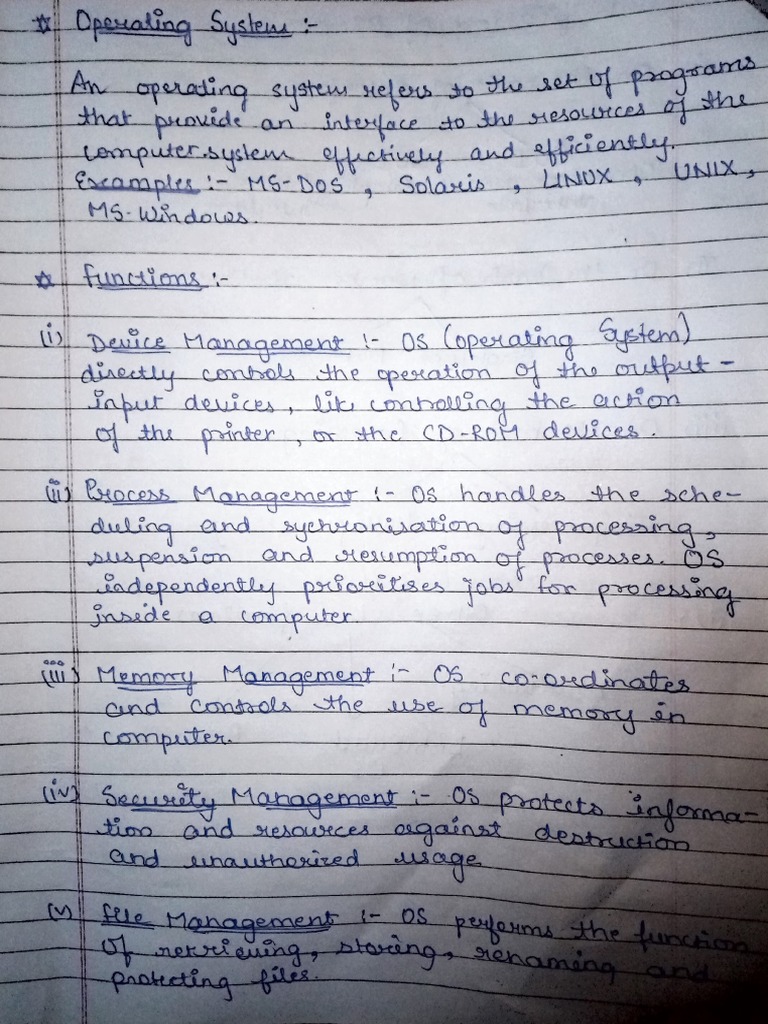 ☆ Operating System :-
An operating system refers to the set of programs
that provide an interface to the resources of the
computer.system effectively and efficiently.
Examples :- MS-DOS , Solaris , LINUX , UNIX ,
MS-Windows.
☆ functions :-
(i) Device Management :- OS (operating System)
directly controls the operation of the output-
input devices, lik controlling the action
of the printer , or the CD-ROM devices.
(ii) Process Management :- OS handles the sche-
duling and sychronisation of processing,
suspension and resumption of processes. OS
independently prioritises jobs for processing
inside a computer.
(iii) Memory Management :- OS co-ordinates
and controls the use of memory in
computer.
(iv) Security Management :- OS protects informa-
tion and resources against destruction
and unauthorized usage
(v) file Management :- OS performs the function
of retrieving, storing, renaming and
protecting files.